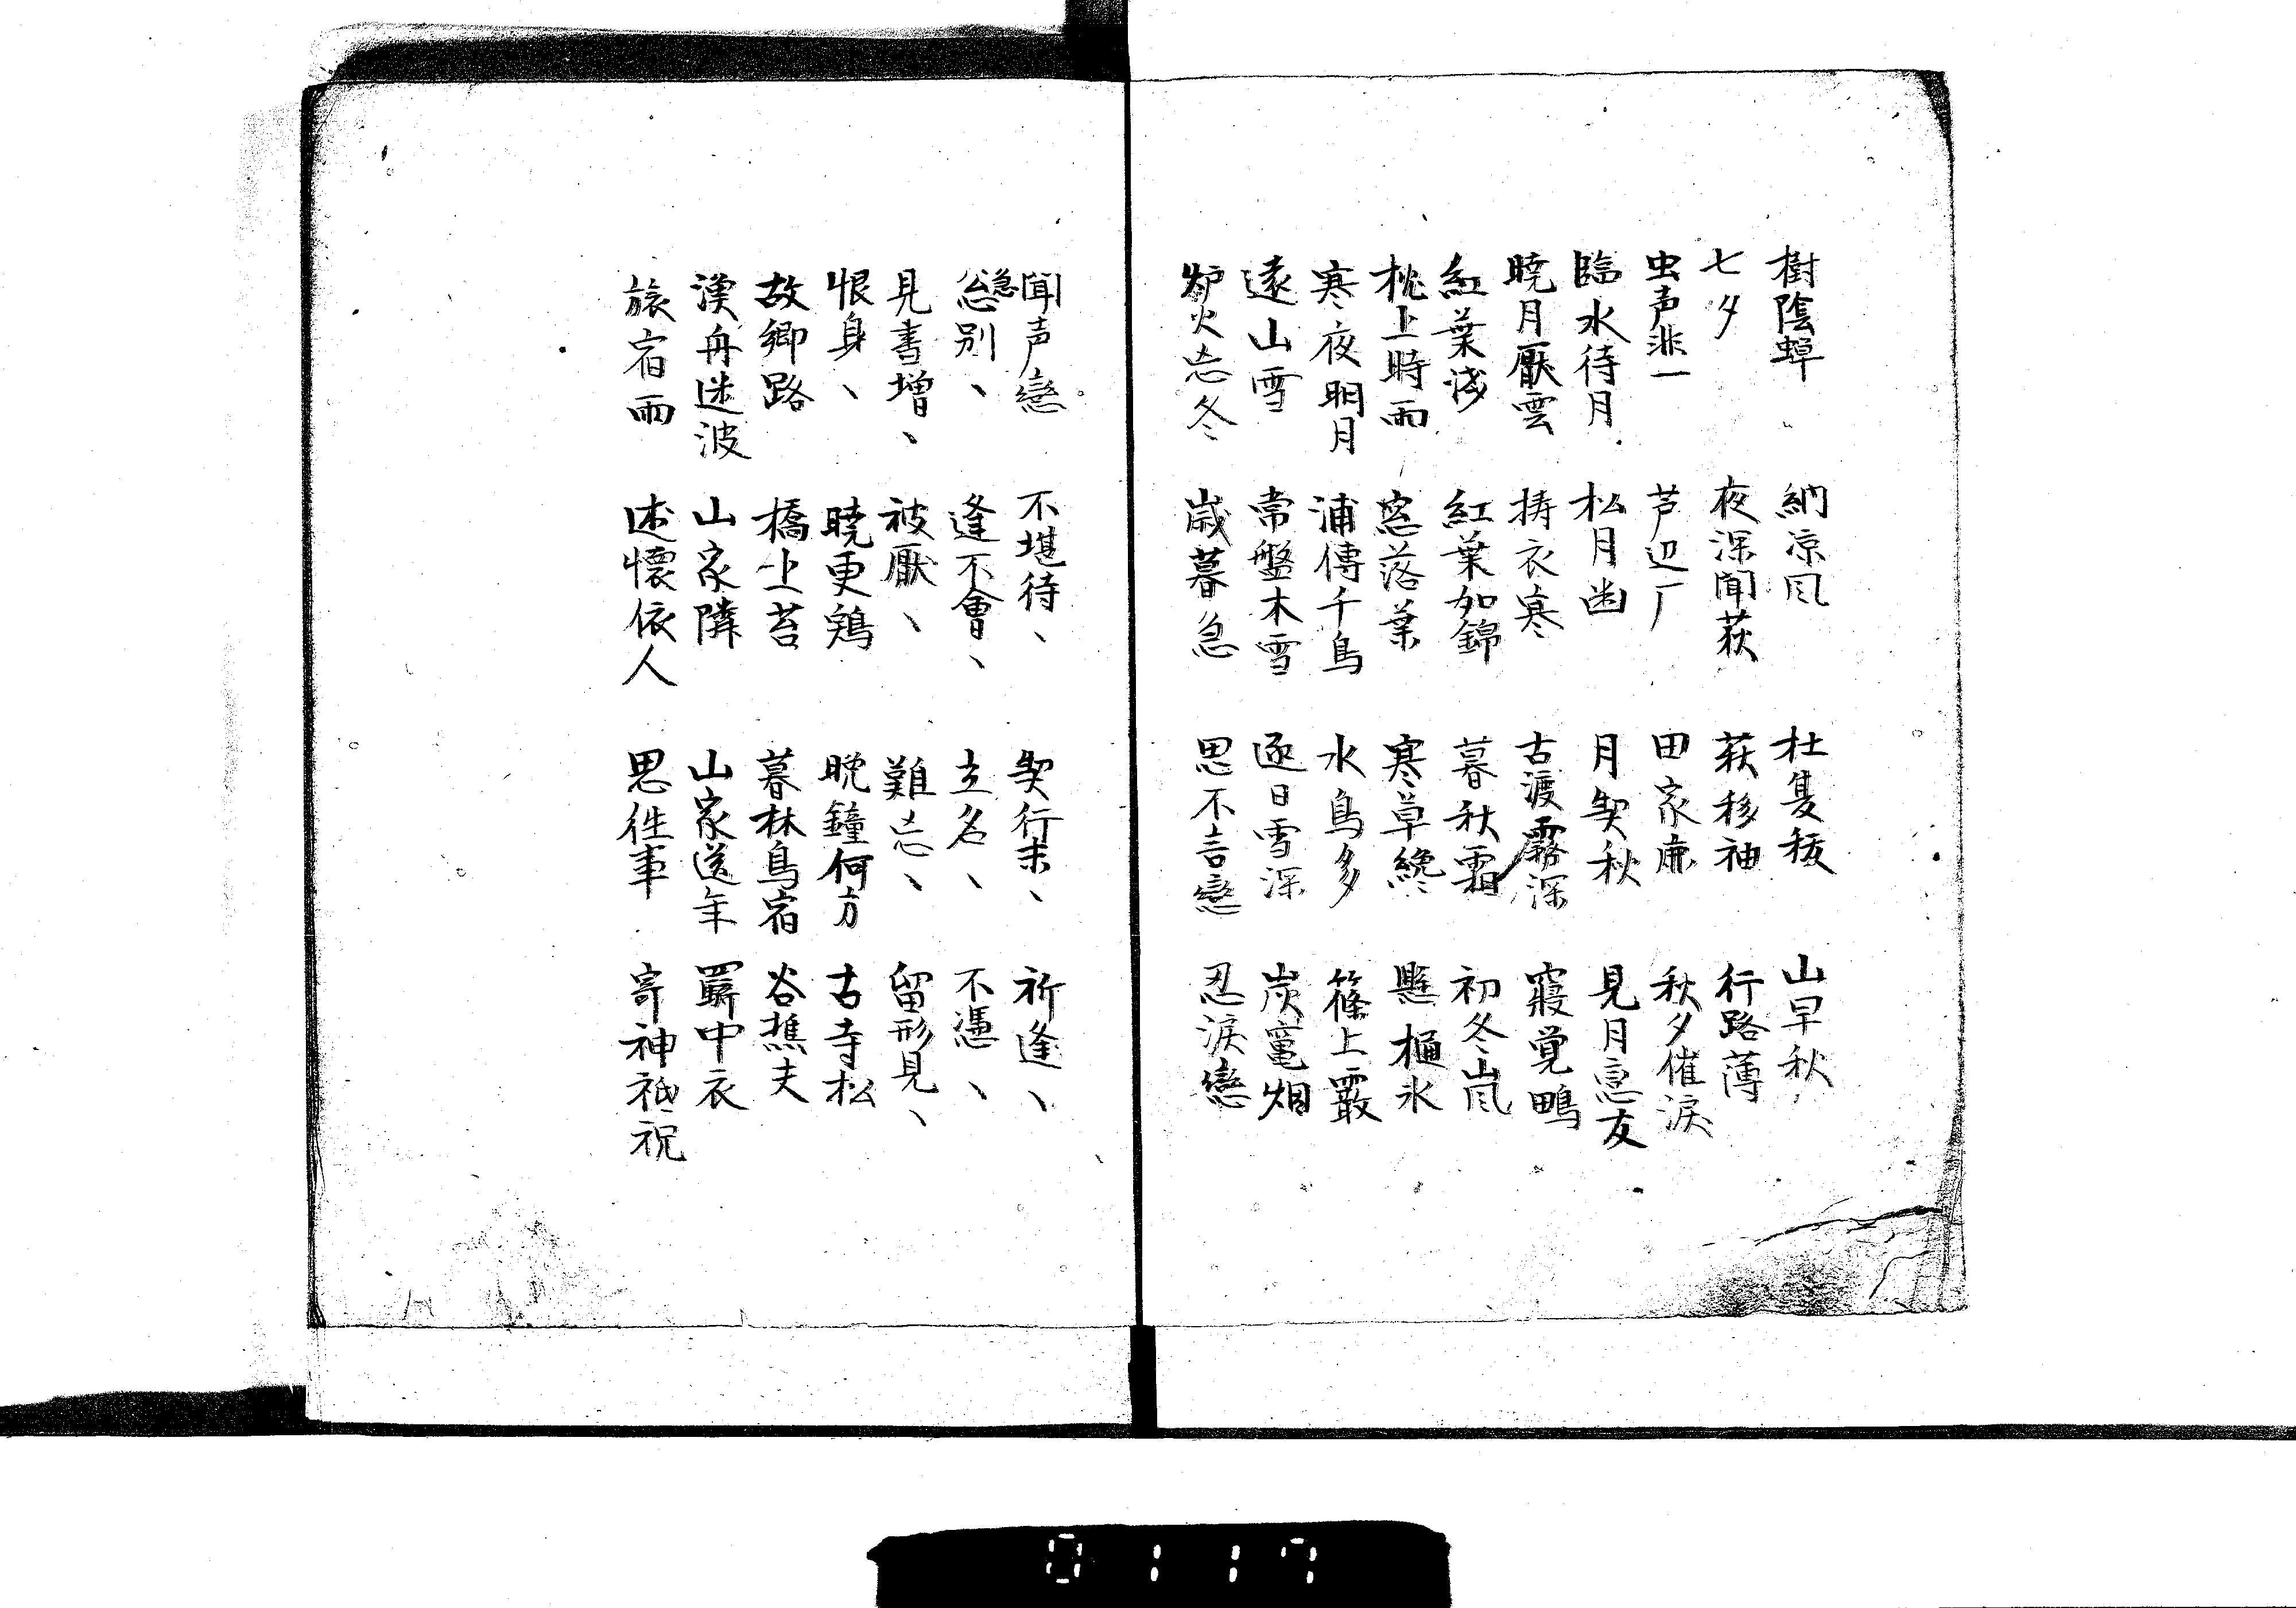 樹陰蝉 納凉風 杜夏祓 山早秋
七夕 夜深聞荻 萩移袖 行路薄
虫声非一 芦辺厂 田家鹿 秋夕催涙
臨水待月 松月幽 月契秋 見月忘友
暁月厭雲 擣衣寒 古渡霧深 寝覚鴫
紅葉浅 紅葉如錦 暮秋霜 初冬嵐
枕上時雨 窓落葉 寒草纔 懸樋氷
寒夜明月 浦傳千鳥 水鳥多 篠上霰
遠山雪 常盤木雪 逐日雪深 炭竈烟
炉火忘冬 歳暮急 思不言戀 忍涙戀
聞声戀 不堪待、 契行末、 祈逢、
急別、 逢不會、 立名、 不憑、
見書増、 被厭、 難忘、 留形見、
恨身、 暁更鶏 晩鐘何方 古寺松
故郷路 橋上苔 暮林鳥宿 谷樵夫
漢舟迷波 山家隣 山家送年 羇中衣
旅宿雨 述懐依人 思往事 寄神祇祝
0117